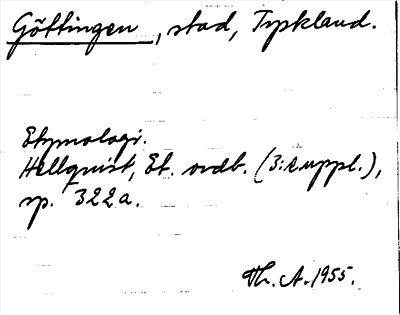 Göttingen, stad, Tyskland.
Etymologi.
Hellquist, Et. ordb. (3:e uppl.),
sp. 322a.
Th. A. 1955.